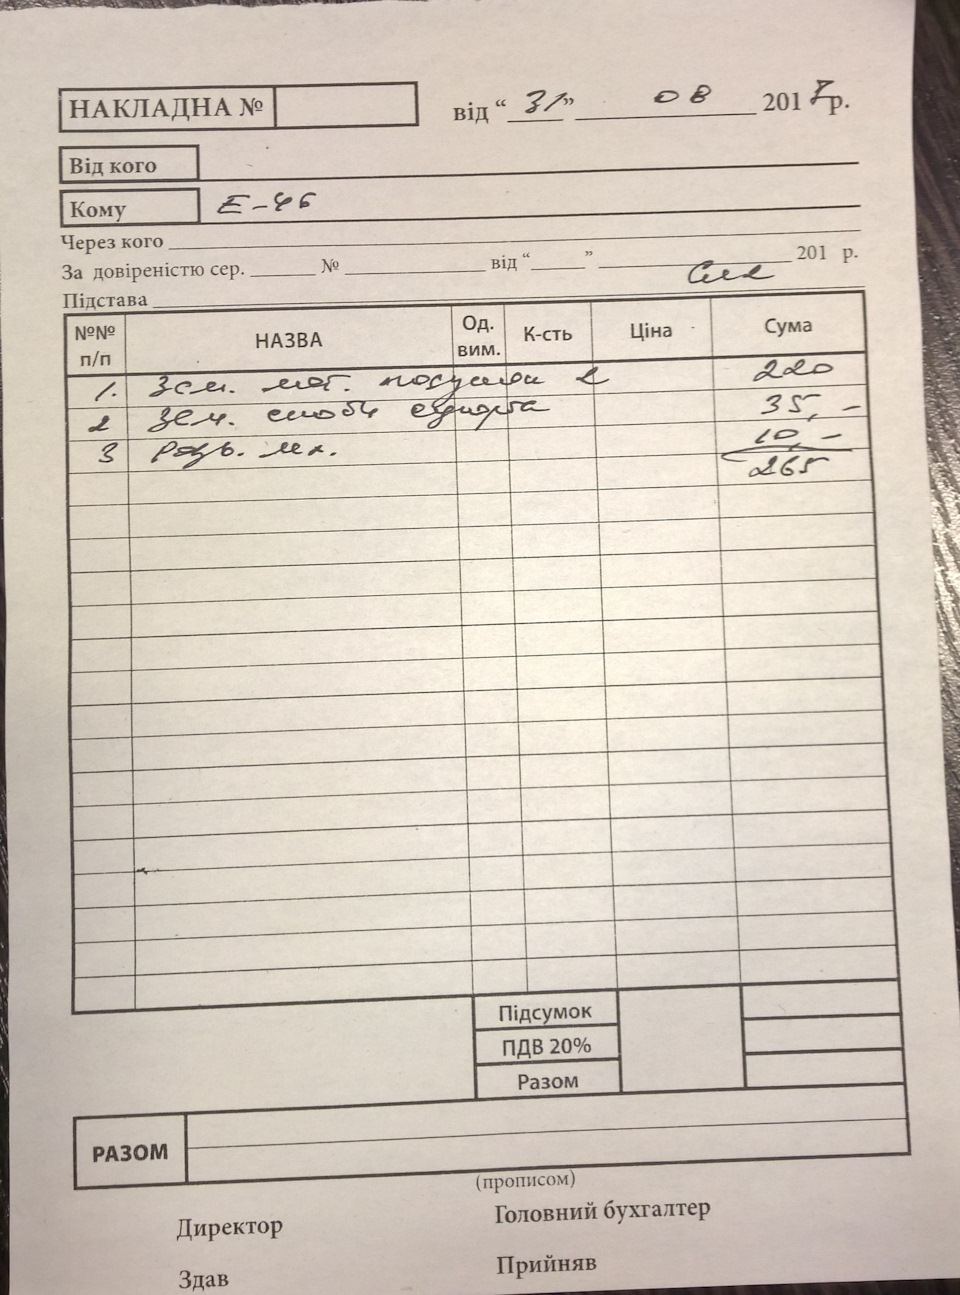 НАКЛАДНА № від “31” 08 2017 р.
Від кого
Кому E-46
Через кого
За довіреністю сер. № від “ ” 201 р.
Підстава
№№ п/п НАЗВА Од. вим. К-сть Ціна Сума
1. Зам. мот. подушки 2 220
2 Зам. 35,-
3 Розв. 10,-
265
Підсумок
ПДВ 20%
Разом
РАЗОМ
(прописом)
Директор Головний бухгалтер
Здав Прийняв